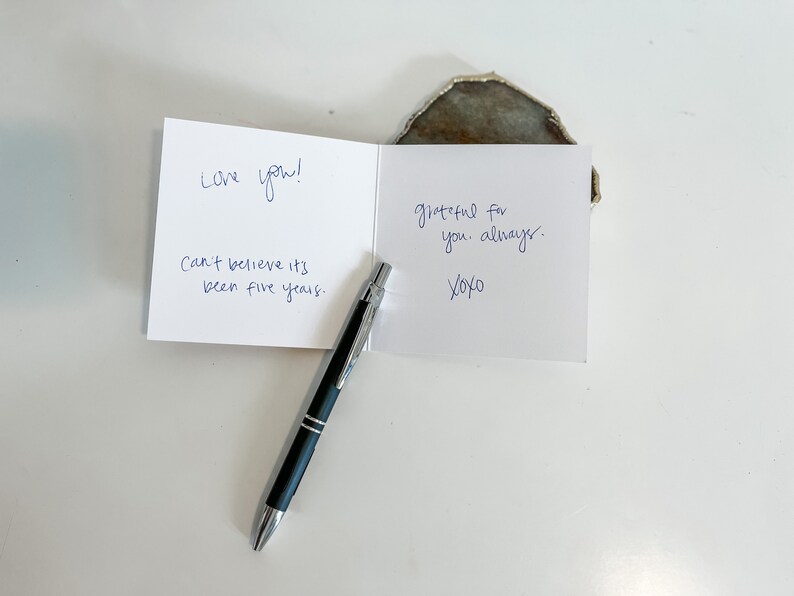 Love you!
Can't believe it's
been five years.
grateful for
you. always.
XOXO